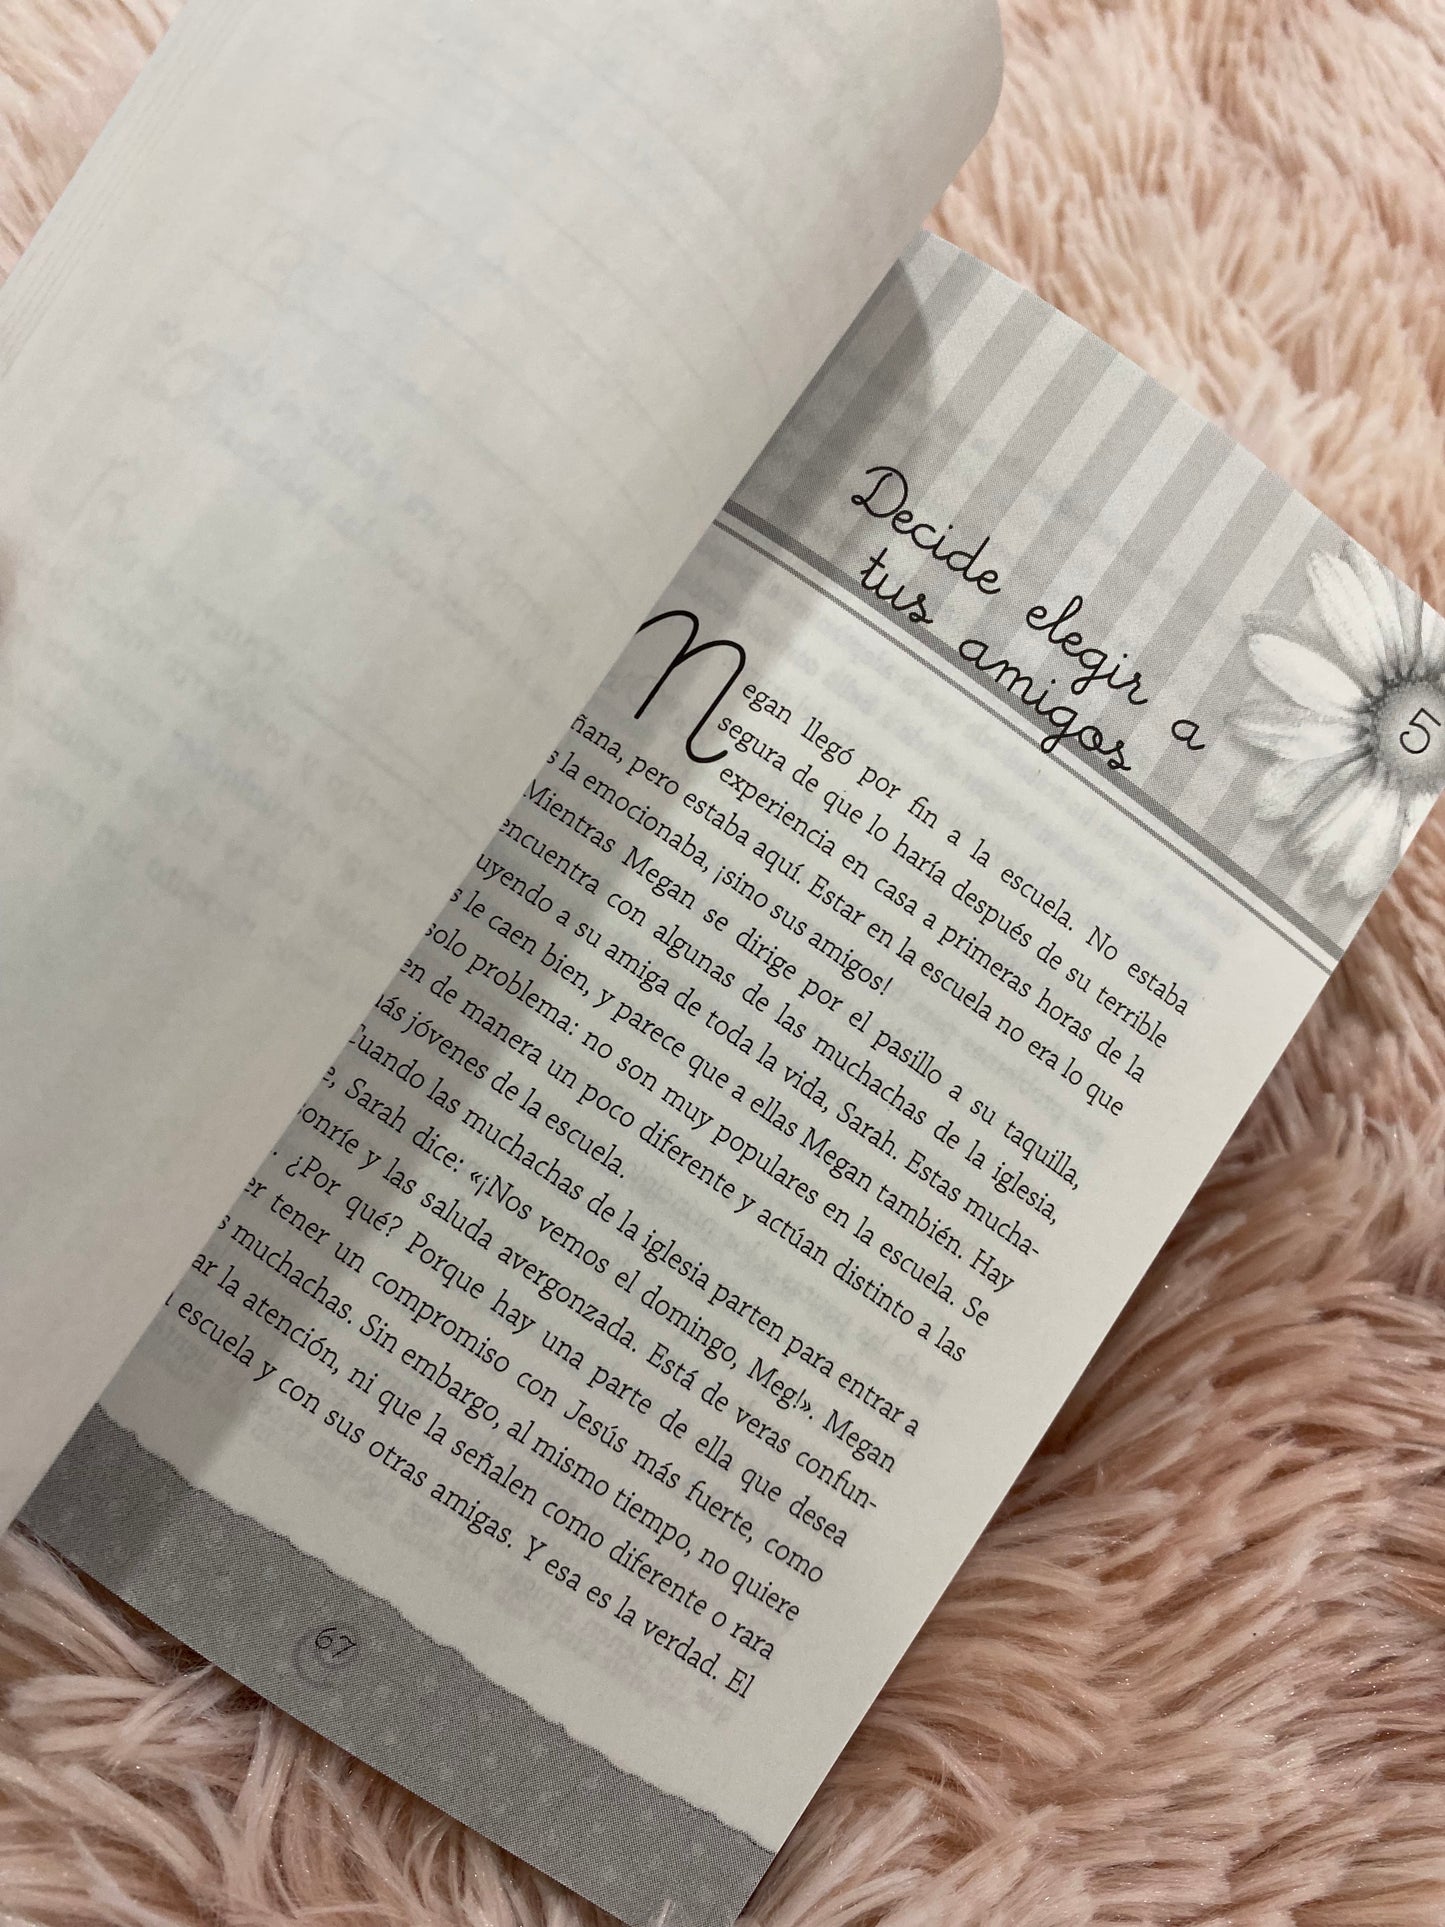 Decide elegir a
tus amigos
5
Megan llegó por fin a la escuela. No estaba
segura de que lo haría después de su terrible
experiencia en casa a primeras horas de la
ñana, pero estaba aquí. Estar en la escuela no era lo que
s la emocionaba, ¡sino sus amigos!
Mientras Megan se dirige por el pasillo a su taquilla,
encuentra con algunas de las muchachas de la iglesia,
uyendo a su amiga de toda la vida, Sarah. Estas mucha-
s le caen bien, y parece que a ellas Megan también. Hay
solo problema: no son muy populares en la escuela. Se
en de manera un poco diferente y actúan distinto a las
más jóvenes de la escuela.
Cuando las muchachas de la iglesia parten para entrar a
e, Sarah dice: «¡Nos vemos el domingo, Meg!». Megan
onríe y las saluda avergonzada. Está de veras confun-
. ¿Por qué? Porque hay una parte de ella que desea
er tener un compromiso con Jesús más fuerte, como
s muchachas. Sin embargo, al mismo tiempo, no quiere
ar la atención, ni que la señalen como diferente o rara
escuela y con sus otras amigas. Y esa es la verdad. El
67